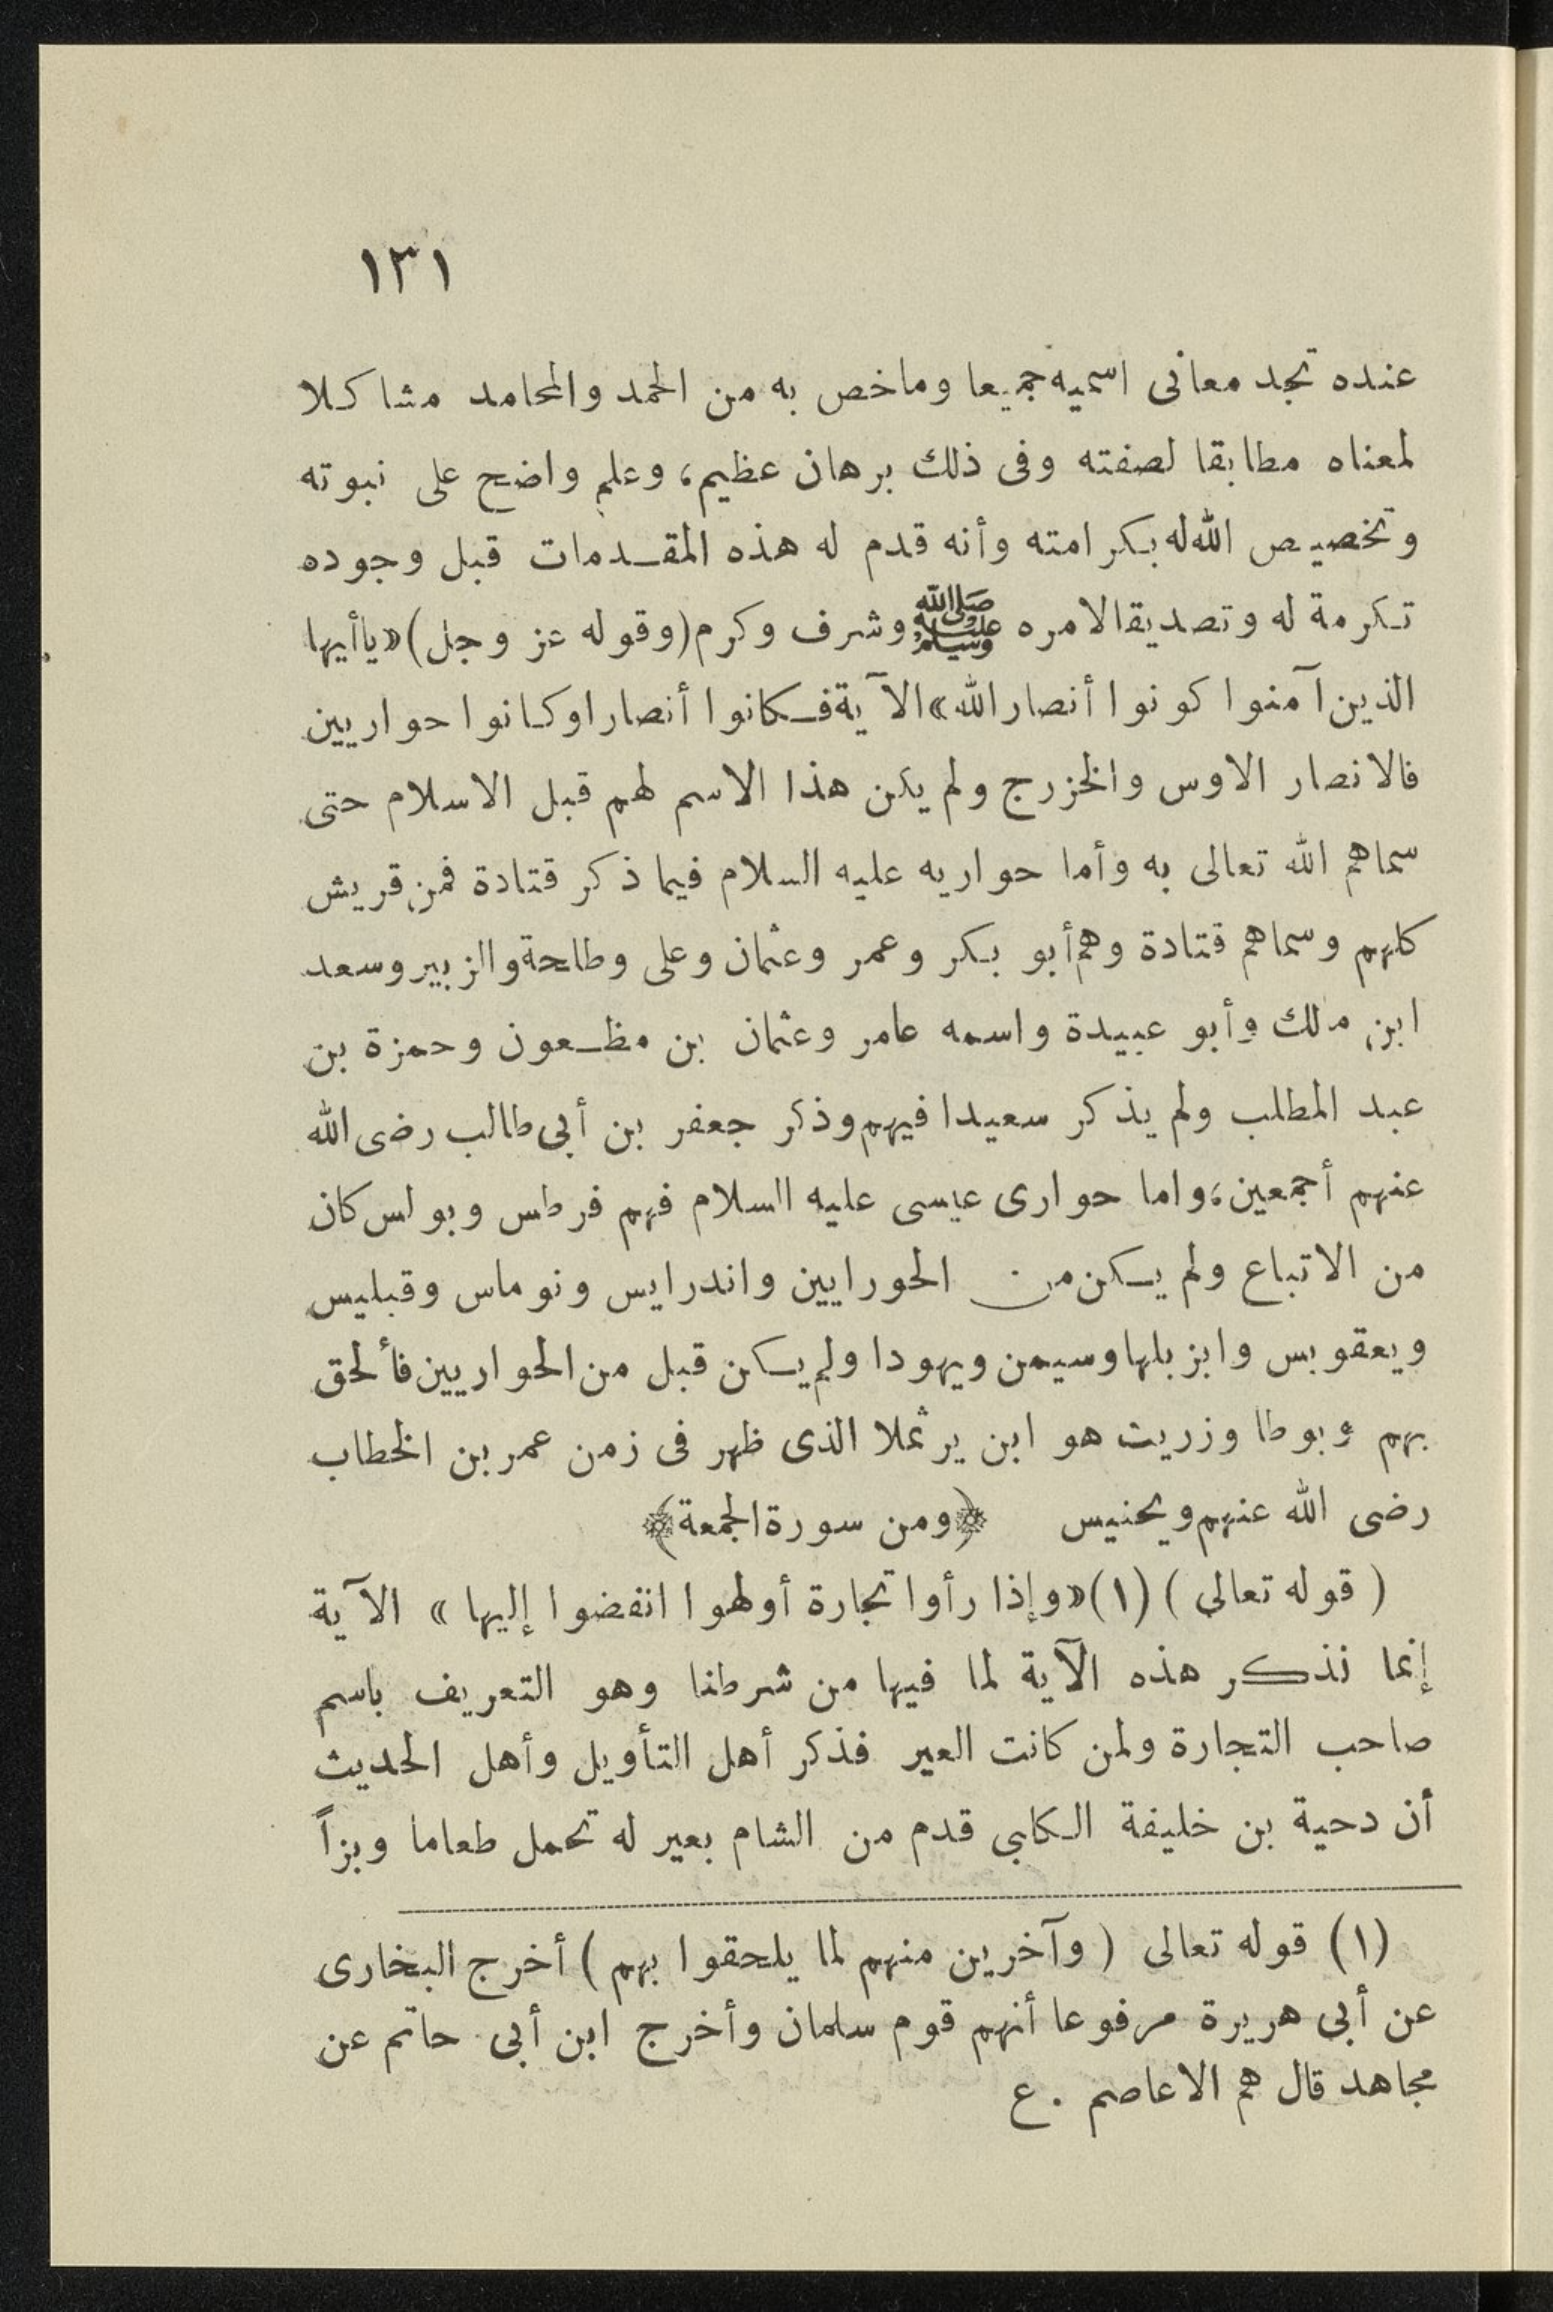 ١٣١
عنده تجد معانى اسميه جميعا وماخص به من الحمد والمحامد مشاكلا
لمعناه مطابقا لصفته وفى ذلك برهان عظيم، وعلم واضح على نبوته
وتخصيص الله له بكرامته وأنه قدم له هذه المقدمات قبل وجوده
تكرمة له وتصديقا لامره ﷺ وشرف وكرم (وقوله عز وجل) «ياأيها
الذين آمنوا كونوا أنصار الله» الآية فكانوا أنصارا وكانوا حواريين
فالانصار الاوس والخزرج ولم يكن هذا الاسم لهم قبل الاسلام حتى
سماهم الله تعالى به وأما حواريه عليه السلام فيما ذكر قتادة فمن قريش
كلهم وسماهم قتادة وهم أبو بكر وعمر وعثمان وعلى وطلحة والزبير وسعد
ابن مالك وأبو عبيدة واسمه عامر وعثمان بن مظعون وحمزة بن
عبد المطلب ولم يذكر سعيدا فيهم وذكر جعفر بن أبى طالب رضى الله
عنهم أجمعين، واما حوارى عيسى عليه السلام فهم فرطس وبولس كان
من الاتباع ولم يكن من الحورايين واندرايس ونوماس وقبليس
ويعقوبس وابزبلها وسيمن ويهودا ولم يكن قبل من الحواريين فألحق
بهم وبوطا وزريت هو ابن يرثملا الذى ظهر فى زمن عمر بن الخطاب
رضى الله عنهم ويحنيس ﴿ومن سورة الجمعة﴾
( قوله تعالى ) (١) «وإذا رأوا تجارة أو لهوا انفضوا إليها» الآية
إنما نذكر هذه الآية لما فيها من شرطنا وهو التعريف باسم
صاحب التجارة ولمن كانت العير فذكر أهل التأويل وأهل الحديث
أن دحية بن خليفة الكلبى قدم من الشام بعير له تحمل طعاما وبزاً
(١) قوله تعالى ( وآخرين منهم لما يلحقوا بهم ) أخرج البخارى
عن أبى هريرة مرفوعا أنهم قوم سلمان وأخرج ابن أبى حاتم عن
مجاهد قال هم الاعاصم . ع